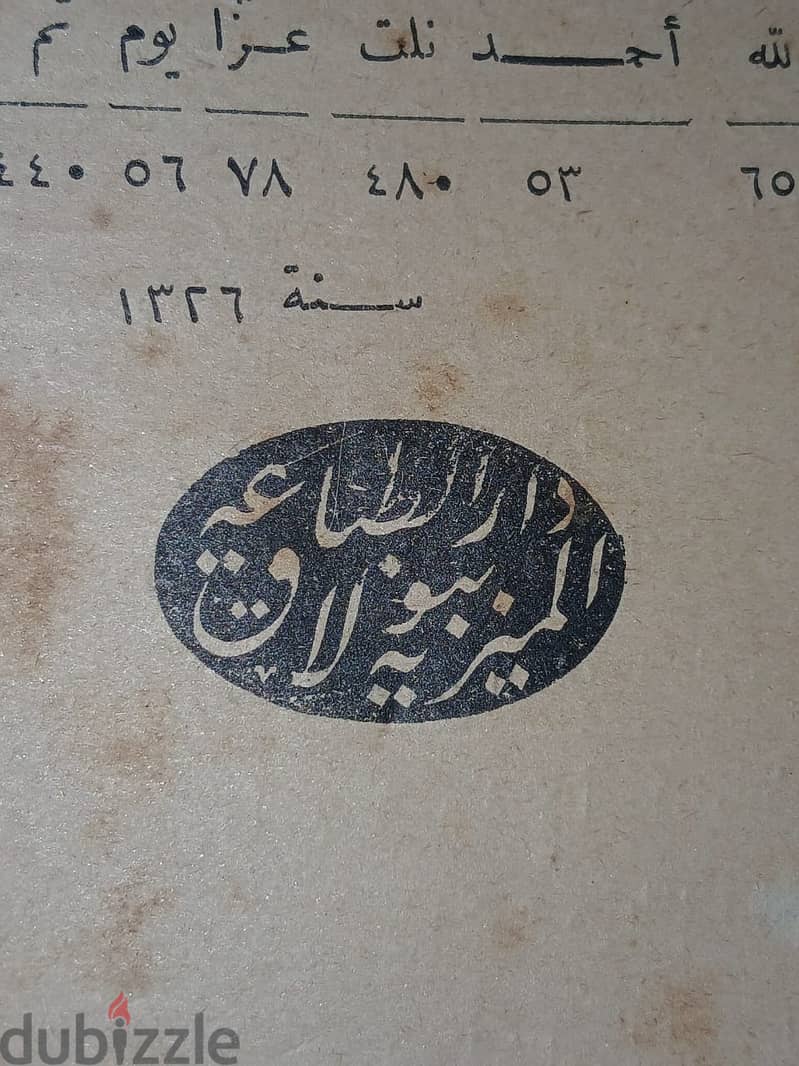 لله أحمد نلت عزا يوم تم
٦٥ ٥٣ ٤٨٠ ٧٨ ٥٦ ٤٤٠
سنة ١٣٢٦
دار الطباعة
الميرية ببولاق
dubizzle